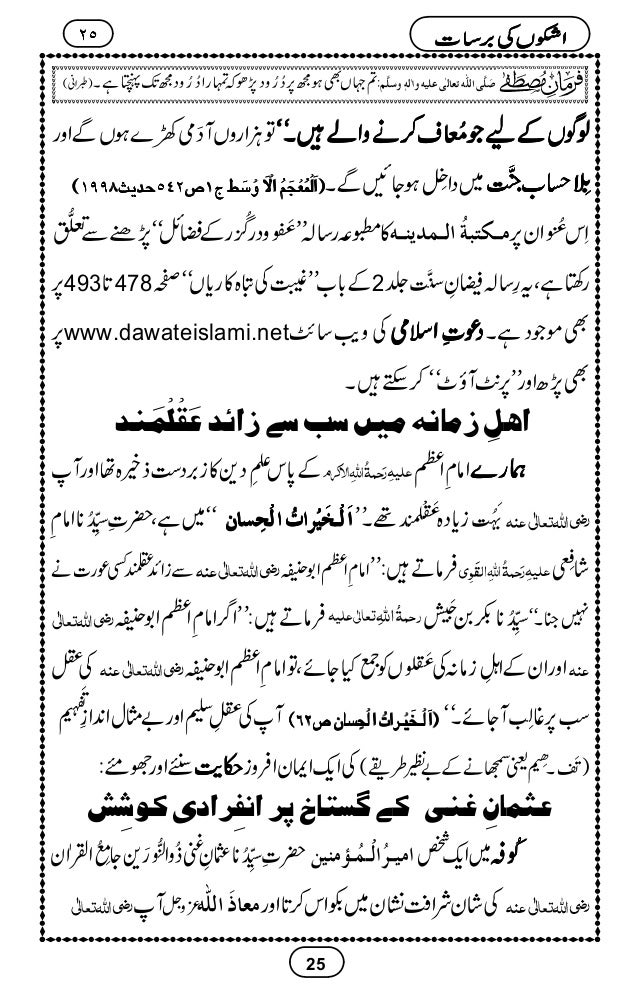 اشکوں کی برسات
۲۵
فرمانِ مصطفٰے صَلَّی اللہ تعالٰی علیہ والہٖ وسلَّم: تم جہاں بھی ہو مجھ پر دُرُود پڑھو کہ تمہارا دُرُود مجھ تک پہنچتا ہے۔ (طبرانی)
لوگوں کے لیے جو مُعاف کرنے والے ہیں۔‘‘ تو ہزاروں آدَمی کھڑے ہوں گے اور
بِلا حساب جنَّت میں داخِل ہوجائیں گے۔ (اَلْمُعْجَمُ الْاَوْسَط ج۱ص۵۴۲حدیث۱۹۹۸)
اِس عُنوان پر مکتبۃُ المدینہ کا مطبوعہ رسالہ ’’عَفو و درگُزر کے فضائل‘‘ پڑھنے سے تعلُّق
رکھتا ہے، یہ رِسالہ فیضانِ سنَّت جلد 2 کے باب ’’غیبت کی تباہ کاریاں‘‘ صفحہ 478 تا 493 پر
بھی موجود ہے۔ دعوتِ اسلامی کی ویب سائٹ www.dawateislami.net پر
بھی پڑھ اور ’’پرنٹ آؤٹ‘‘ کر سکتے ہیں۔
اہلِ زمانہ میں سب سے زائد عَقْلْمَند
ہمارے امامِ اعظم علیہِ رَحمۃُ اللہِ الاکرم کے پاس علمِ دین کا زبردست ذخیرہ تھا اور آپ
رضی اللہ تعالٰی عنہ بَہُت زیادہ عَقْلمند تھے۔ ’’اَلْخَیْراتُ الْحِسان‘‘ میں ہے، حضرتِ سیِّدُنا امامِ
شافعی علیہِ رَحمۃُ اللہِ القوی فرماتے ہیں: ’’امامِ اعظم ابو حنیفہ رضی اللہ تعالٰی عنہ سے زائد عقلمند کسی عورت نے
نہیں جنا۔‘‘ سیِّدُنا بکر بن حَبیش رحمۃُ اللہِ تعالٰی علیہ فرماتے ہیں: ’’اگر امامِ اعظم ابو حنیفہ رضی اللہ تعالٰی
عنہ اور ان کے اہلِ زمانہ کی عَقلوں کو جمع کیا جائے، تو امامِ اعظم ابو حنیفہ رضی اللہ تعالٰی عنہ کی عقل
سب پر غالِب آجائے۔‘‘ (اَلْخَیْراتُ الْحِسان ص۶۲) آپ کی عقلِ سلیم اور بے مثال اندازِ تَفہیم
(تَف۔ہِیم یعنی سمجھانے کے بے نظیر طریقے) کی ایک ایمان افروز حکایت سنئے اور جھومئے:
عثمانِ غنی کے گستاخ پر انفِرادی کوشِش
کُوفہ میں ایک شخص امیرُ الْمُؤمنین حضرتِ سیِّدُنا عثمانِ غنی ذُوالنُّورین جامِعُ القران
رضی اللہ تعالٰی عنہ کی شان شرافت نشان میں بکواس کرتا اور معاذَاللہ عزوجل آپ رضی اللہ تعالٰی
25